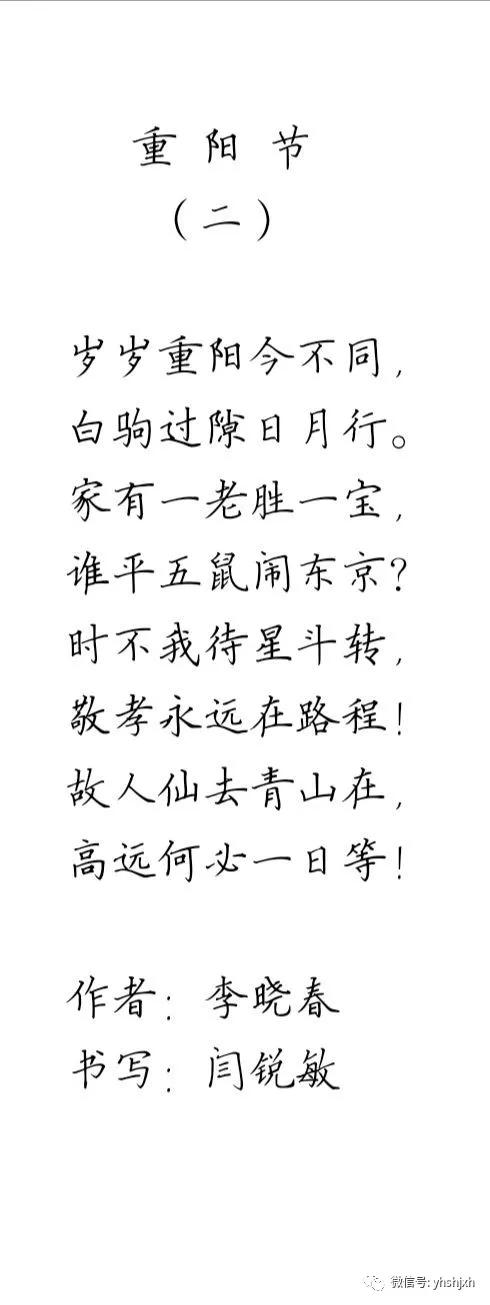 重阳节
（二）
岁岁重阳今不同，
白驹过隙日月行。
家有一老胜一宝，
谁平五鼠闹东京？
时不我待星斗转，
敬孝永远在路程！
故人仙去青山在，
高远何必一日等！
作者：李晓春
书写：闫锐敏
微信号: yhshjxh